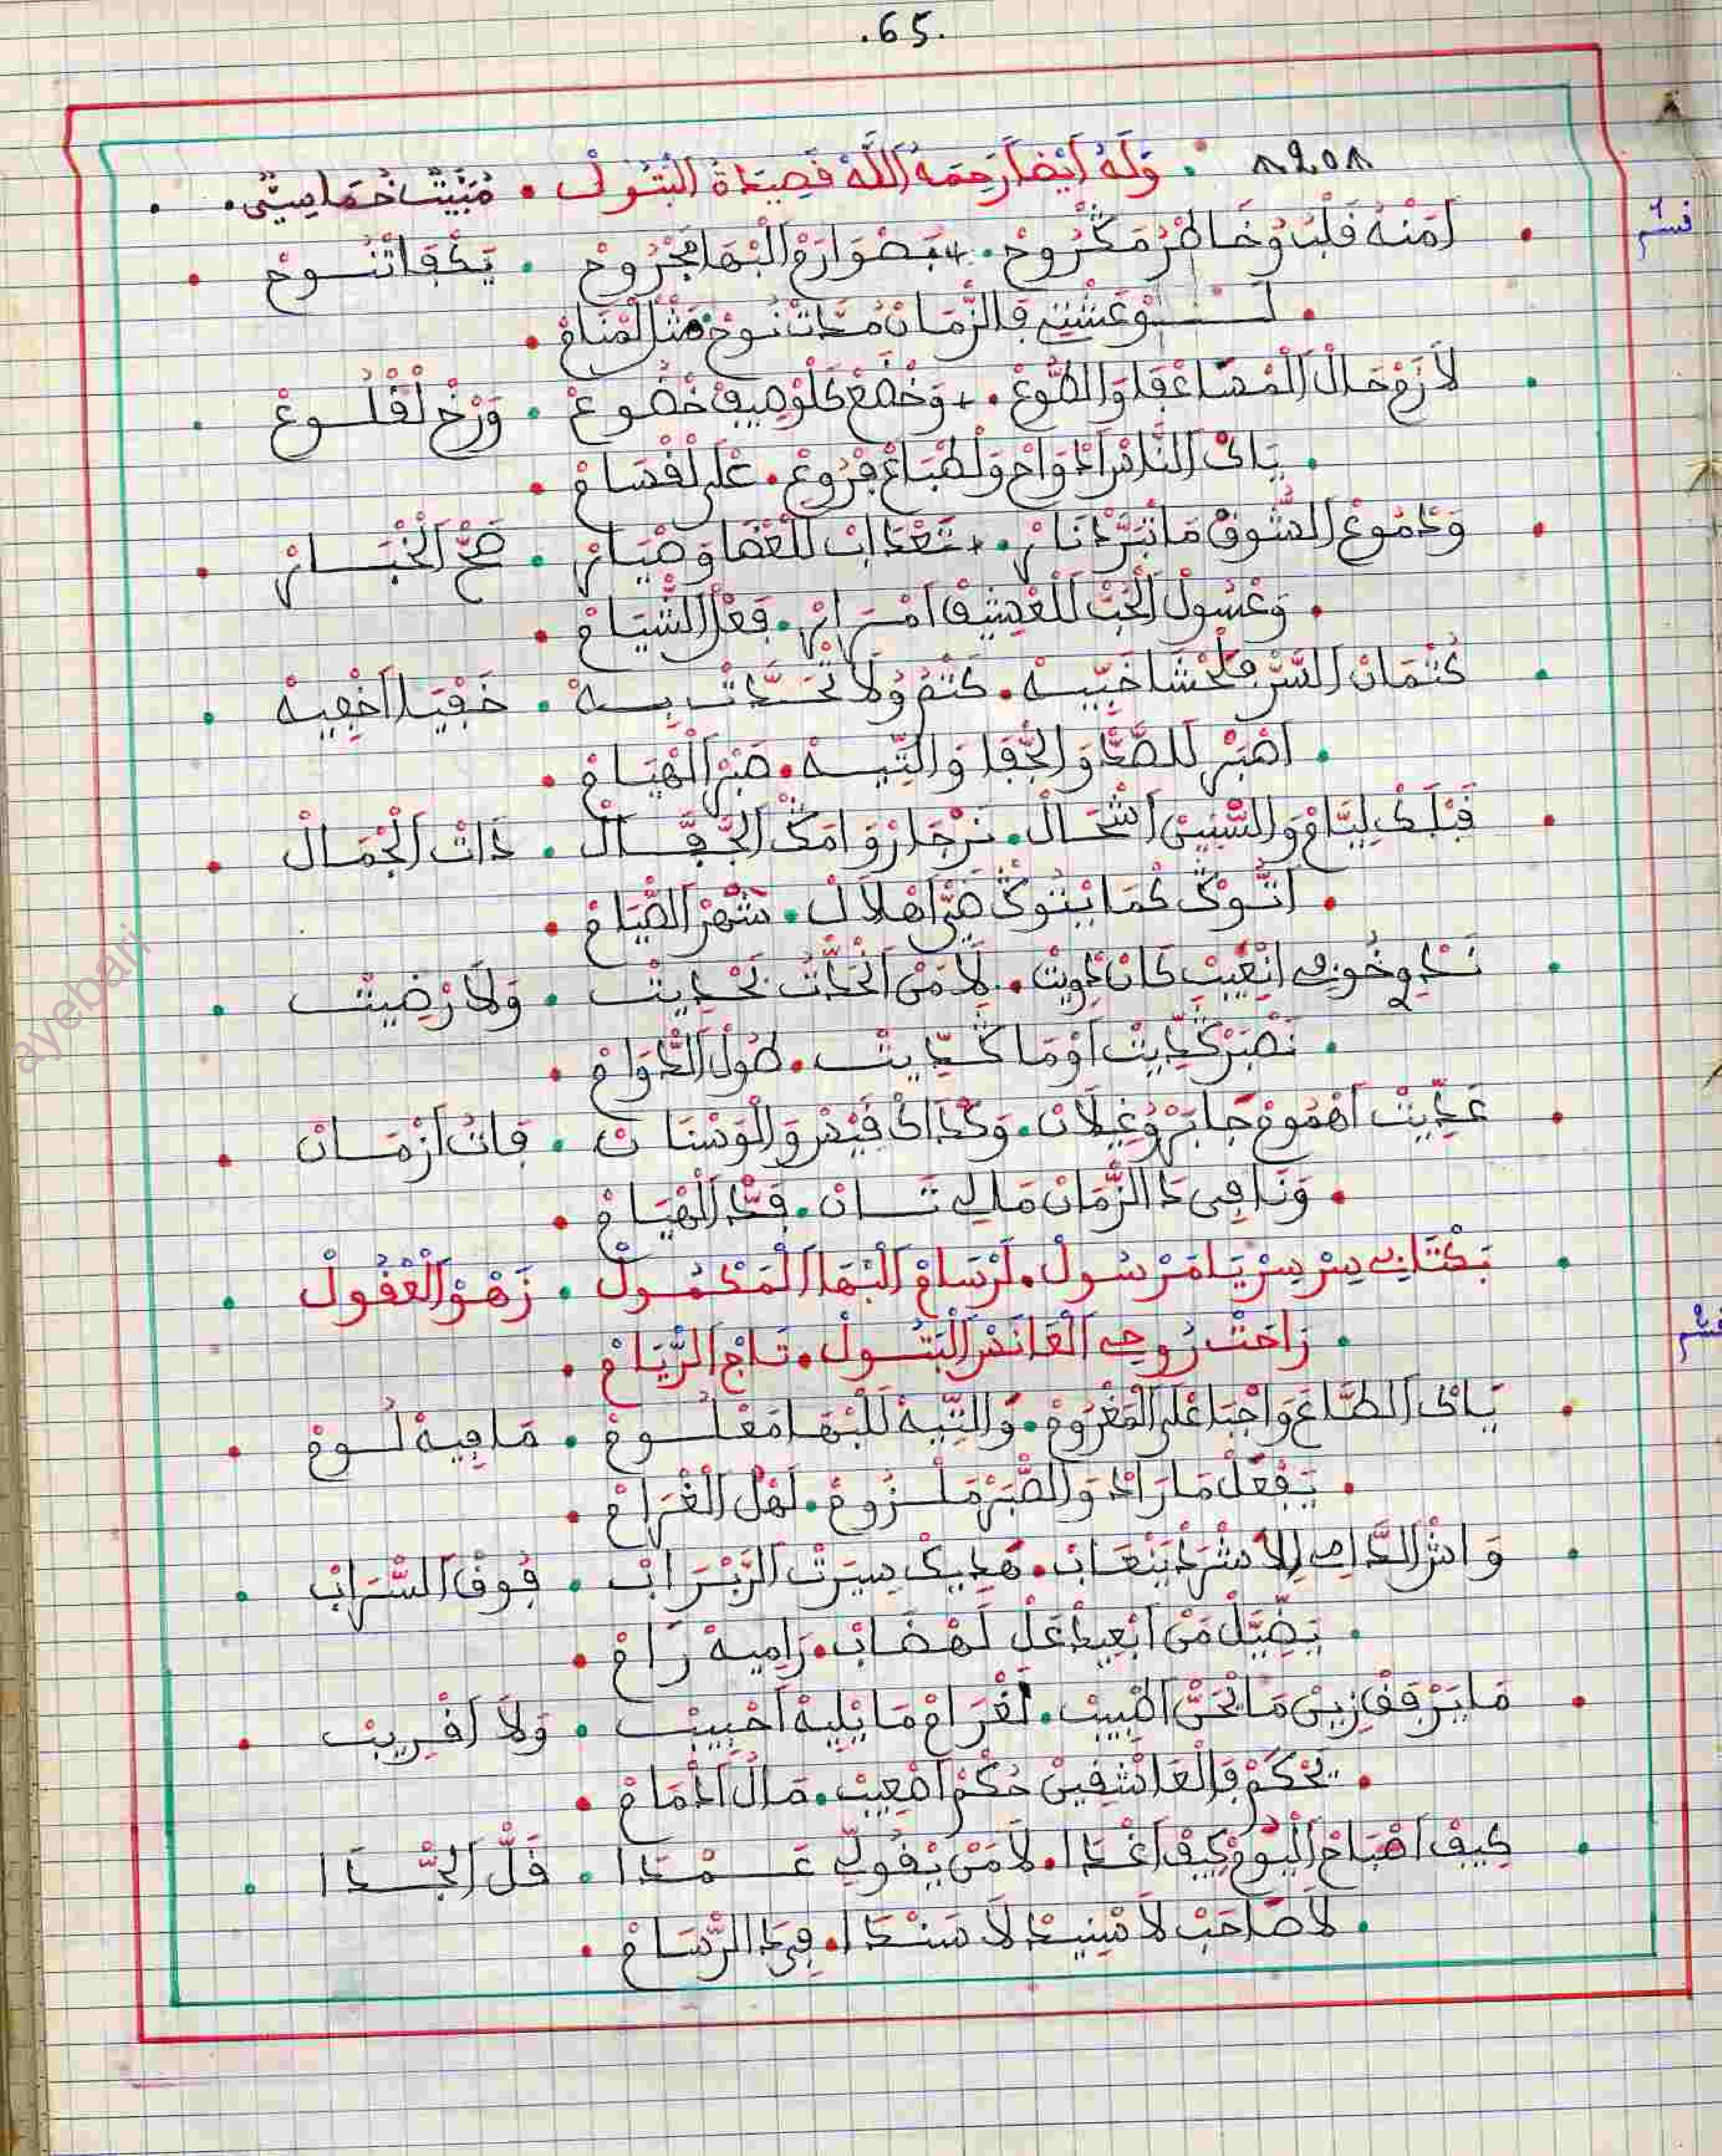 .65.
وَلَهُ أَيْضًا رَحِمَهُ اللَّهْ قَصِيدَةْ الْبَتُولْ . مْبَيَّتْ خُمَاسِي .
قسم
لَمْنَهْ قَلْبُ وُخَاطْرُ مَكْرُوحْ . بَصْوَارَمْ الْبْهَا مَجْرُوحْ . يَكْفَا تْنُوحْ
لَوْ عَشْتِ فَالزّْمَانْ مُدَّاتْ نُوحْ مَثْلْ الْمْنَامْ
لاَزَمْ حَالْ الْمْسَاعْفَا وَالطُّوعْ . وَخْضَعْ كَلُوصِيفْ خْضُوعْ . وَرْخِ لَقْلُوعْ
يَاكْ النَّاسْ ادْوَاحْ وَلَطْبَاعْ فْرُوعْ . عْلَى لَقْسَامْ
وَدْمُوعْ الشُّوقْ مَا تْبَرَّدْ نَارْ . تَعْدَابْ لَلْعْضَا وَضْيَارْ . صَحّْ الْخْبَارْ
وَعْسُولْ الْحُبّْ لَلْعْشِيقْ امْرَارْ . فَعْلْ الشّْيَامْ
كُتْمَانْ السَّرّْ فَلَحْشَا خَبِّيهْ . كَتْمُ وُلاَ تْحَدَّتْ بِهْ . خَفْيَا اخْفِيهْ
اصْبَرْ لَلصَّدّْ وَالجْفَا وَالتِّيهْ . صَبْرْ الْهْيَامْ
قَبْلَكْ لِيَّامْ وَالسّْنِينْ اشْحَالْ . نَرْجَا رْوَامَكْ الْجَفَّالْ . ذَاتْ الْجْمَالْ
اتُّوكْ كْمَا يْتُوكْ ضَيّْ اهْلاَلْ . شْهَرْ الصّْيَامْ
نَدْوِ خُونِي انْعِيبْ كَانْ دْوِيتْ . لاَمَنْ اتْحَدَّتُ بَحْدِيتْ . وَلاَ رْضِيتْ
نَصْبَرْ كَدِّيتْ اوْ مَا كَدِّيتْ . طُولْ الدّْوَامْ
عَدِّيتْ اهْمُومْ جَابَرْ وُغِيلاَنْ . وَكْدَاكْ قَيْسْ وَالْوَسْنَانْ . فَاتُ ازْمَانْ
وَنَا فِي دَا الزّْمَانْ مَالِي تَانْ . فَدّْ الْهْيَامْ
قسم
بَكْتَابِي سِرْ سِرْ يَا مَرْسُولْ . لَرْسَامْ الْبْهَا الْمَكْمُولْ . زَهْوْ الْعْقُولْ
رَاحَتْ رُوحِي الْغَانَسْ الْبَتُولْ . تَاجْ الرّْيَامْ
يَاكْ الطَّاعَ وَاجْبَا عْلَى الْمَغْرُومْ . وَالتِّيهْ لَلْبْهَا مَعْلُومْ . مَا فِيهْ لُومْ
يَفْعَلْ مَا رَادْ وَالصّْبَرْ مَلْزُومْ . لَهْلْ الْغْرَامْ
وَاشْ الدَّامِي إِلاَ شْرَدْ يَنْعَابْ . هَدِيكْ سِيرَتْ الرَّبْرَابْ . فُوقْ السّْرَابْ
يَضِيَّلْ مَنْ ابْعِيدْ عَلْ لَهْضَابْ . رَامِيهْ رَامْ
مَا يَرْقَفْ زِينْ مَا نْحَنّْ الْبِيبْ . لَغْرَامْ مَا يْلِيهْ احْبِيبْ . وَلاَ اقْرِيبْ
يَحْكَمْ فَالْعَاشْقِينْ حُكْمْ اصْعِيبْ . مَالْ ادْمَامْ
كِيفْ اصْبَاحْ الْيُومْ كِيفْ اغْدَا . لاَمَنْ يْقُولِّ عَمْدَا . قَلّْ الْجْدَا
لاَ صَاحَبْ لاَ سْنِيدْ لاَ سَنْدَا . فِي دَا الرّْسَامْ
ayebari